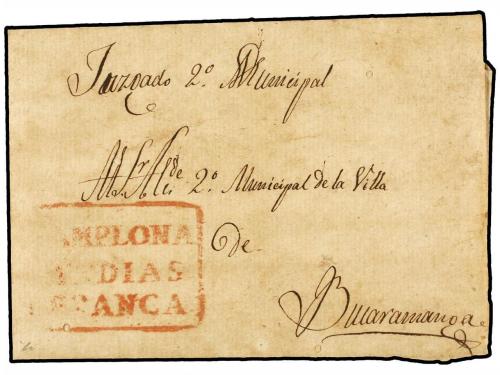 Juzgado 2º Municipal
Al Sr Alc de 2º Municipal de la Villa
de
Bucaramanga
AMPLONA
INDIAS
FRANCA